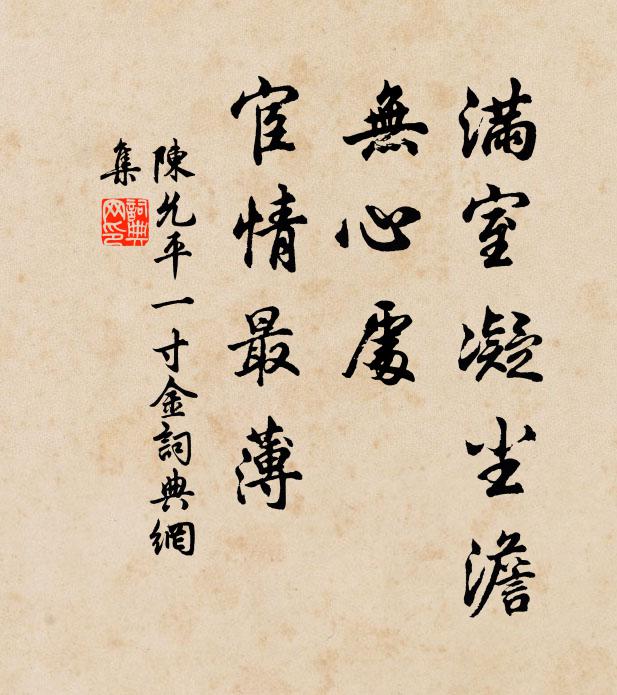 滿室凝尘澹
無心處
宦情最薄
陳允平一寸金詞典網
集
詞典网印